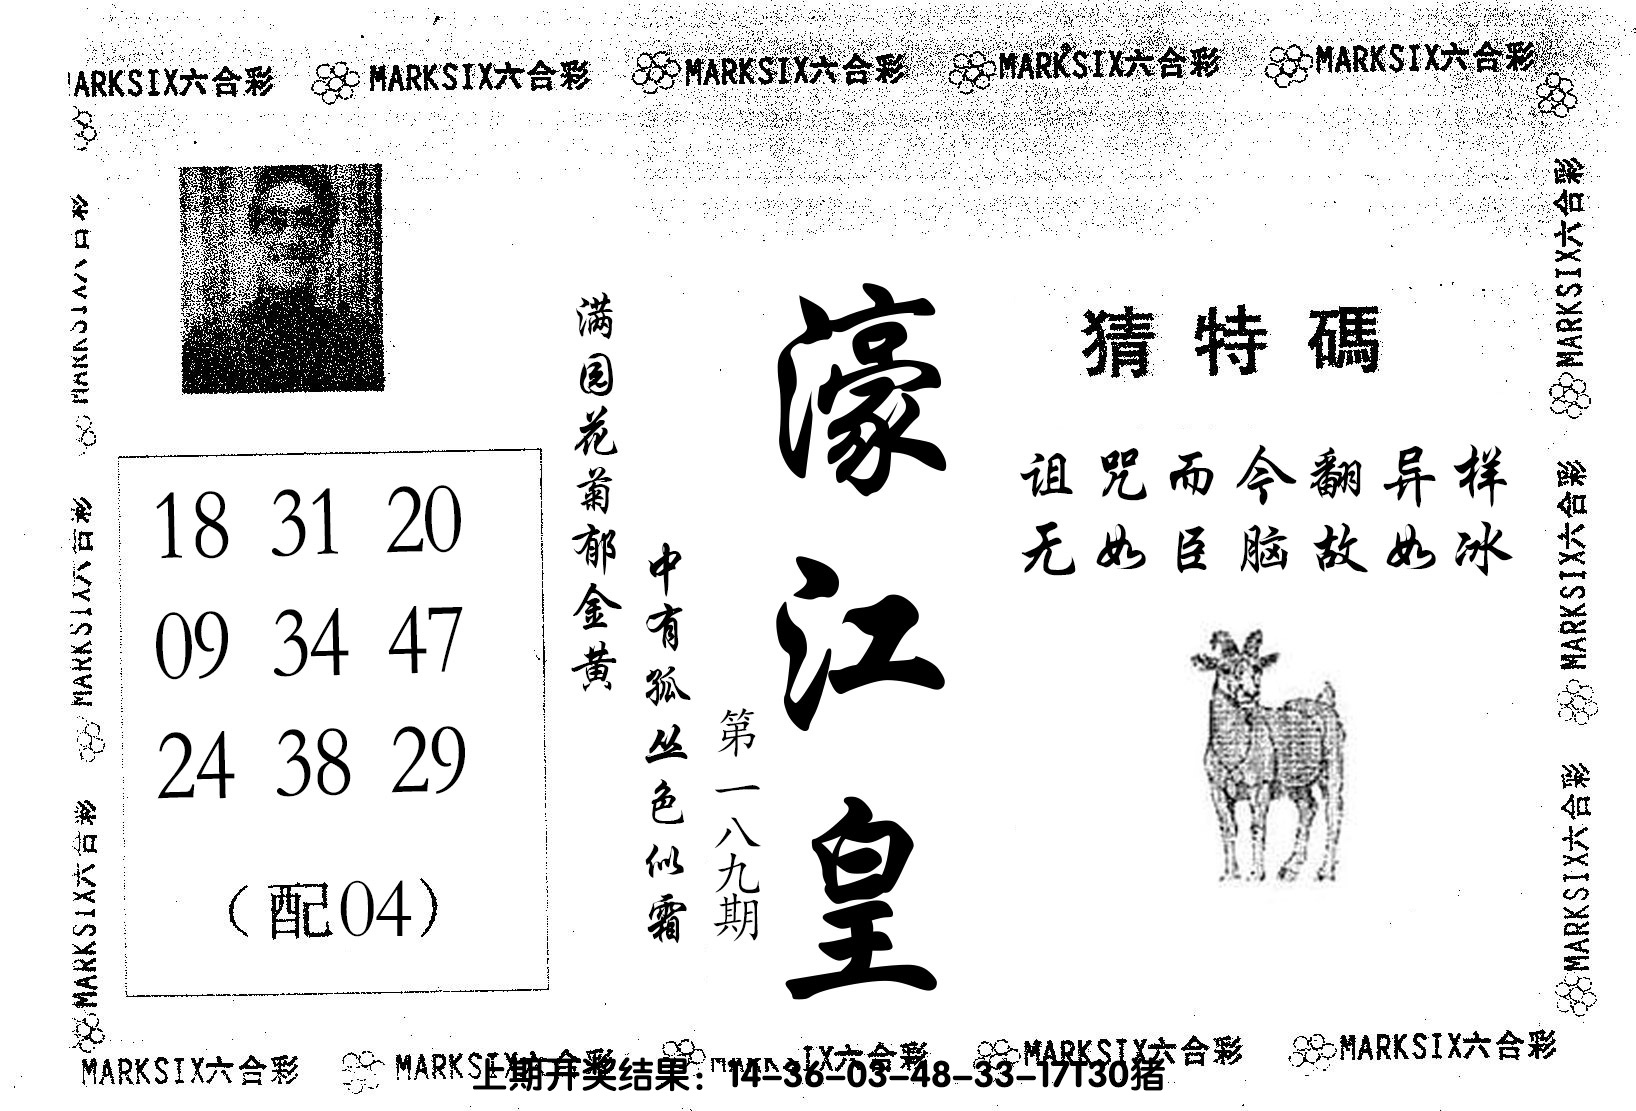 MARKSIX六合彩 MARKSIX六合彩 MARKSIX六合彩 MARKSIX六合彩 MARKSIX六合彩
猜特碼
诅咒而今翻异样
无如臣脑故如冰
濠江皇
第一八九期
满园花菊郁金黄
中有孤丛色似霜
18 31 20
09 34 47
24 38 29
（配04）
MARKSIX六合彩
MARKSIX六合彩
MARKSIX六合彩
MARKSIX六合彩
MARKSIX六合彩
MARKSIX六合彩
MARKSIX六合彩 MARKSIX六合彩 MARKSIX六合彩 MARKSIX六合彩 MARKSIX六合彩
上期开奖结果：14-36-03-48-33-17T30猪